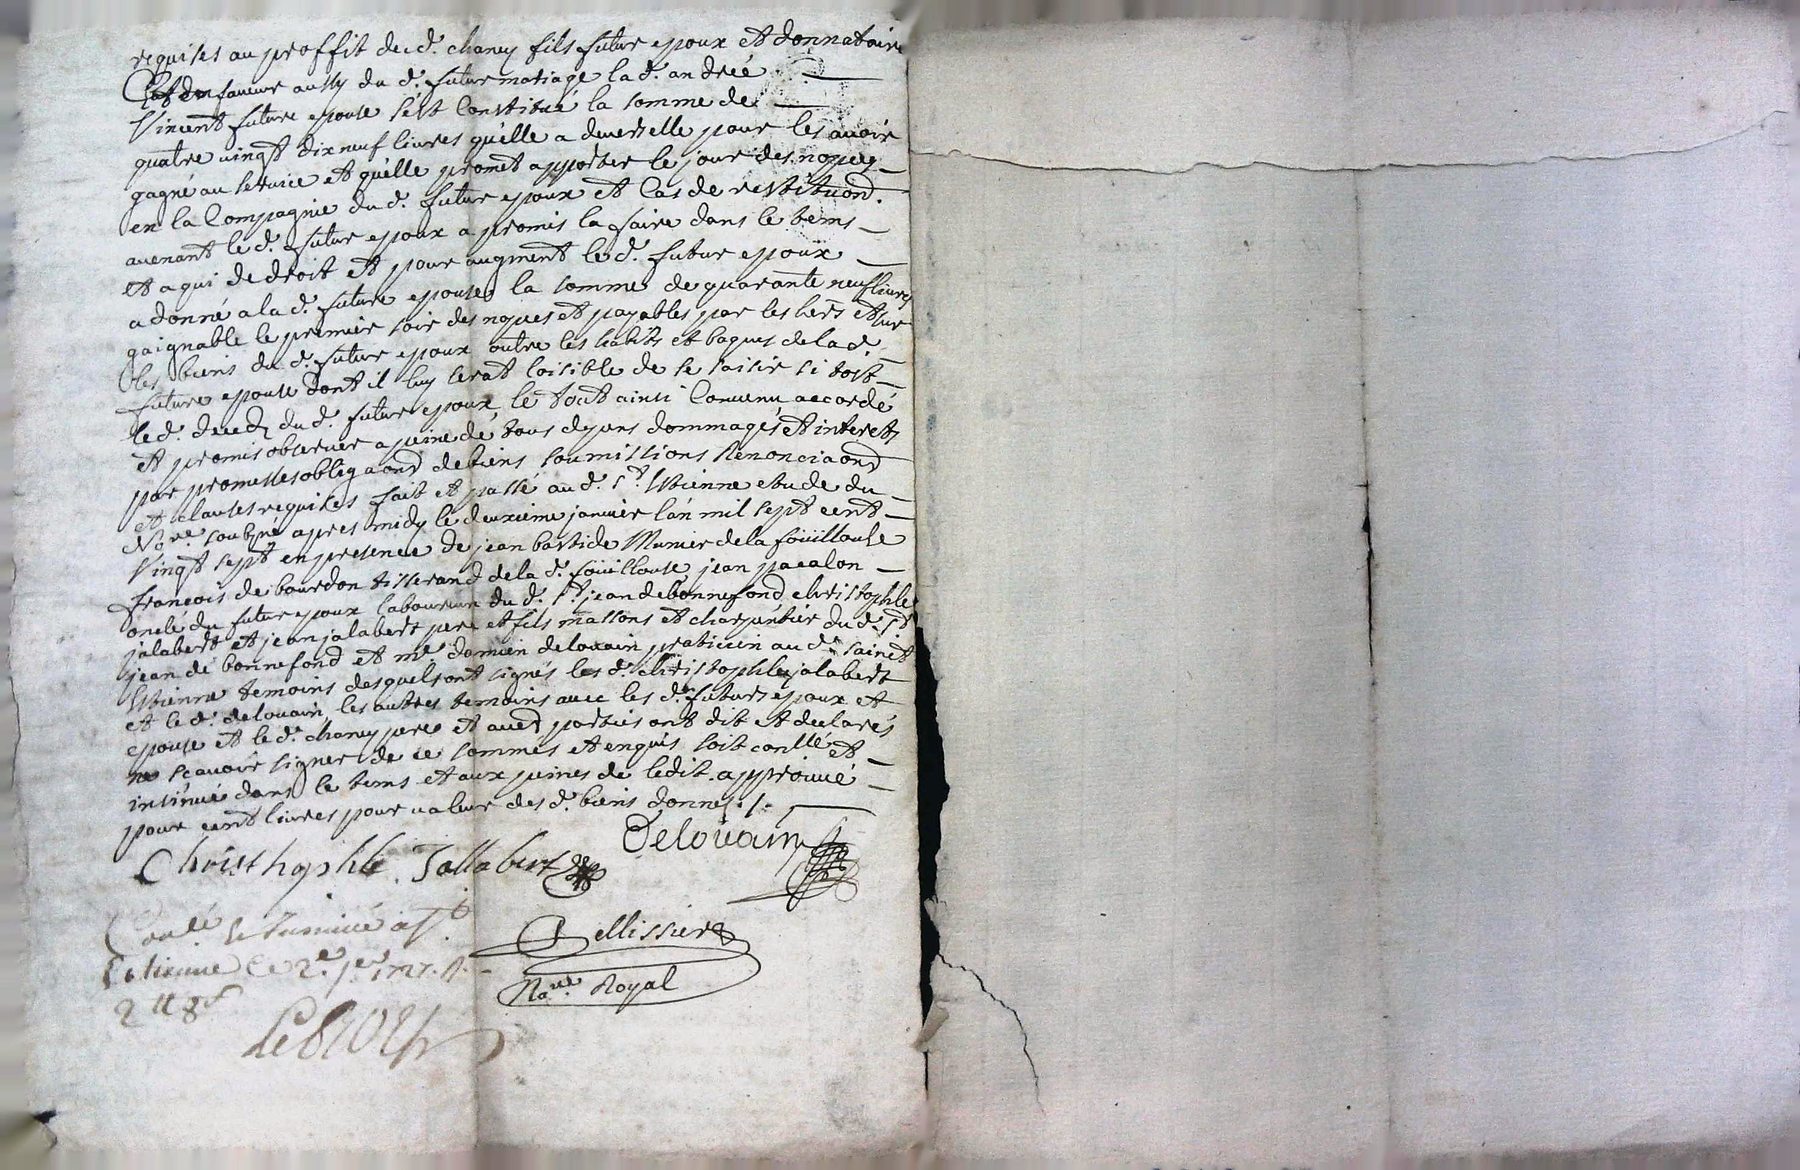 requises au proffit du d. chaney fils futur epoux et donnataire
Et en faveur aussy du d. futur mariage la d. andrée
Vincent future epouse s'est Constitué la somme de
quatre vingt dix neuf livres qu'elle a devers elle pour les avoir
gagné au service et qu'elle promet apporter le jour des nopces
en la Compagnie du d. futur epoux et Cas de restituond.
avenant le d. futur epoux a promis la faire dans le tems
et a qui de droit et pour augment le d. futur epoux
a donné a la d. future epouse la somme de quarante neuf livres
gaignable le premier soir des nopces et payables par les hers et sur
les biens du d. futur epoux outre les habits et bagues de la d.
future epouse dont il luy serat loisible de se saisir si tost
le d. deced du d. futur epoux le tout ainsi Convenu accordé
et promis observer a peine de tous depens dommages et interets
par promesses obligaond de biens soumissions Renonciaond
et clauses requises fait et passé au d. St. Estienne etude du
No.re soubné apres midy le deuxieme janvier l'an mil sept cent
Vingt sept en presence de jean bastide Munier de la foüillouse
francois de bourdon tisserand de la d. foüillouse jean pacalon
oncle du futur epoux laboureur du d. St. jean de bonnefond christophle
jalabert et jean jalabert pere et fils massons et charpentier du d. St
jean de bonnefond et me. damien delouain praticien au d. sainct
Estienne temoins desquels ont signés les d. christophle jalabert
et le d. delouain les autres temoins avec les d. futurs epoux et
epouse et le d. chaney pere et aued parties ont dit et declarés
ne scavoir signer de ce sommés et enquis soit conllé et
insinué dans le tems et aux peines de ledit. approuvé
pour cent livres pour valeur des d. biens donnes ./.
Delouain
Christhophle Jallabert
Conlé et Insinué a St
Estienne le 2e. jer 1727. R.
Pellissier
No.re Royal
2 ll 8s